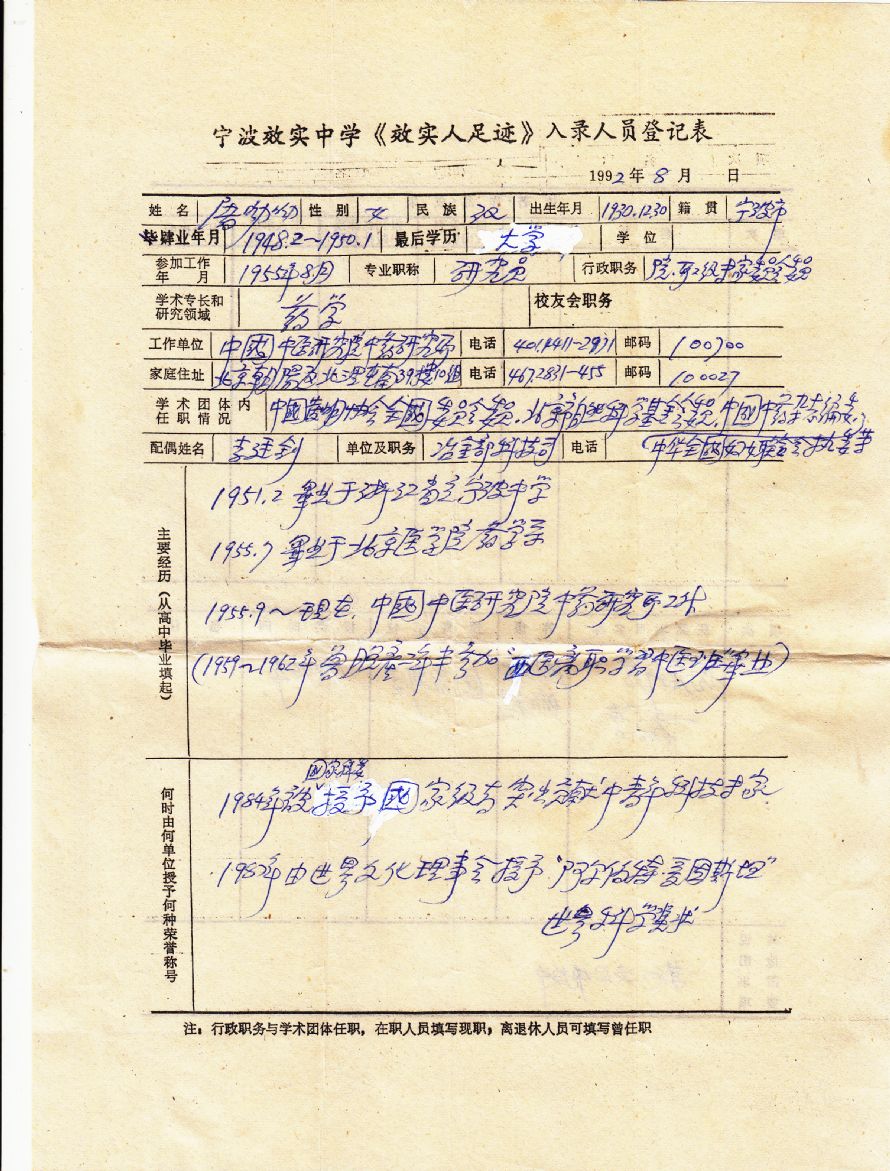 宁波效实中学《效实人足迹》入录人员登记表
1992年8月 日
姓名 屠呦呦 性别 女 民族 汉 出生年月 1930.12.30 籍贯 宁波市
毕肄业年月 1948.2～1950.1 最后学历 大学 学位
参加工作年月 1955年8月 专业职称 研究员 行政职务
学术专长和研究领域 药学 校友会职务
工作单位 中國中医研究院中药研究所 电话 4014411-2971 邮码 100700
家庭住址 北京朝阳区 电话 4672831-455 邮码 100027
学术团体内任职情况 中國药物协会全國委员会委员.
配偶姓名 李廷钊 单位及职务 冶金部科技司 电话 中华全國妇女联合会执委
主要经历（从高中毕业填起）
1951.2 畢业于浙江省立宁波中学
1955.7 畢业于北京医学院药学系
1955.9～现在.中國中医研究院中药研究所工作
(1959～1962年 曾脱产三年半参加"西医离职学习中医班"畢业)
何时由何单位授予何种荣誉称号
国家科委
1984年 授予國家级有突出贡献中青年科技专家.
1987年由世界文化理事会授予"阿尔伯特·爱因斯坦"
世界科学奖状
注：行政职务与学术团体任职，在职人员填写现职；离退休人员可填写曾任职